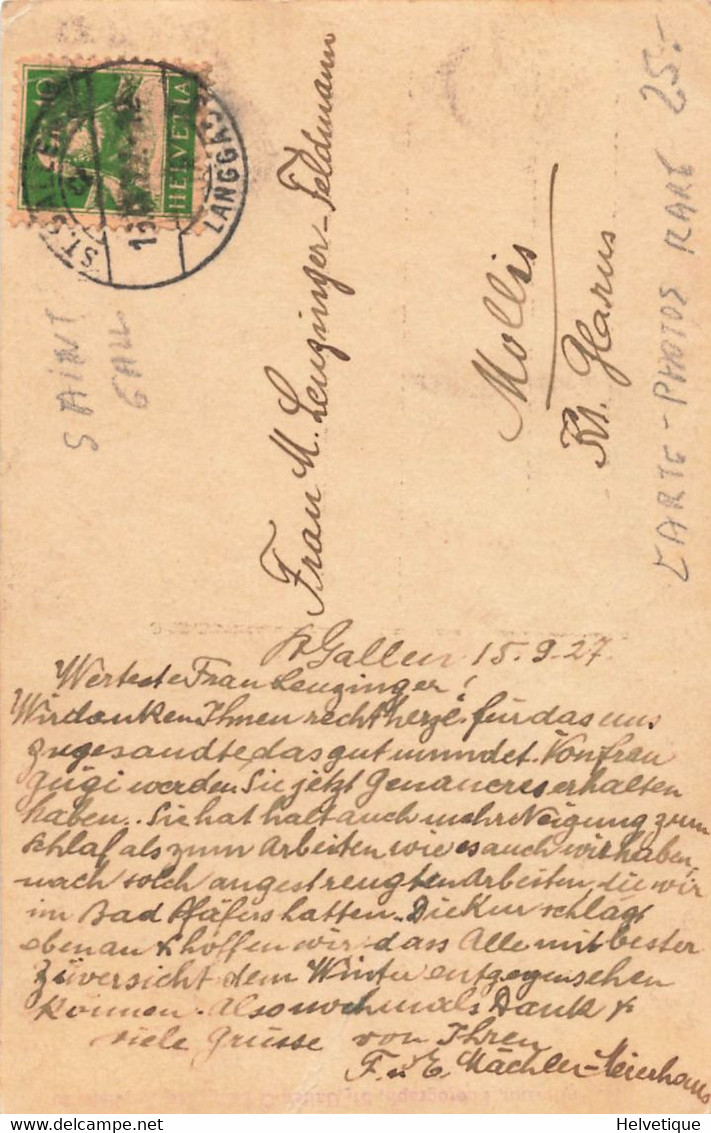 10
HELVETIA
ST. GALLEN
LANGGASSE
SAINT
GALL
Frau M. Leuzinger-Feldmann
Mollis
Kt. Glarus
CARTE-PHOTOS RARE 25.-
St Gallen 15.9.27.
Werteste Frau Leuzinger!
Wir danken Ihnen recht herzl. für das uns
zugesandte das gut mundet. Von Frau
Gügi werden Sie jetzt Genaueres erhalten
haben. Sie hat halt auch mehr Neigung zum
Schlaf als zum Arbeiten wie es auch wir haben,
nach solch angestrengten Arbeiten, die wir
im Bad Pfäfers hatten. Die Kur schlägt
eben an & hoffen wir dass Alle mit bester
Züversicht dem Winter entgegensehen
können. Also nochmals Dank &
viele Grüsse von Ihren
F. u E. Mächler-Meierhans
Helvetique